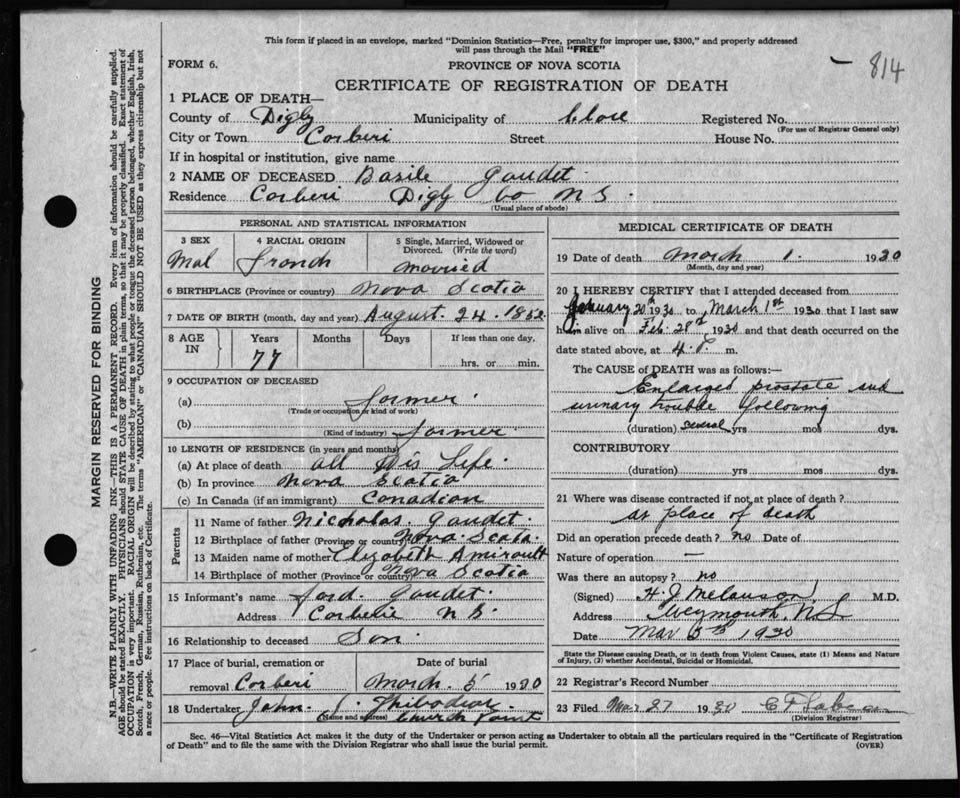 This form if placed in an envelope, marked "Dominion Statistics—Free, penalty for improper use, $300," and properly addressed
will pass through the Mail "FREE"
– 814
FORM 6.
PROVINCE OF NOVA SCOTIA
CERTIFICATE OF REGISTRATION OF DEATH
1 PLACE OF DEATH—
County of Digby Municipality of Clare Registered No.
(For use of Registrar General only)
City or Town Corberi Street House No.
If in hospital or institution, give name
2 NAME OF DECEASED Basile Gaudet
Residence Corberi Digby Co N S.
(Usual place of abode)
PERSONAL AND STATISTICAL INFORMATION
3 SEX 4 RACIAL ORIGIN 5 Single, Married, Widowed or
Divorced. (Write the word)
Mal French Married
6 BIRTHPLACE (Province or country) Nova Scotia
7 DATE OF BIRTH (month, day and year) August. 24. 1852
8 AGE IN Years Months Days If less than one day,
77 hrs. or min.
9 OCCUPATION OF DECEASED
(a) farmer.
(Trade or occupation or kind of work)
(b) farmer
(Kind of industry)
10 LENGTH OF RESIDENCE (in years and months)
(a) At place of death all His Life.
(b) In province Nova Scotia
(c) In Canada (if an immigrant) Canadian
Parents
11 Name of father Nicholas. Gaudet.
12 Birthplace of father (Province or country) Nova. Scota.
13 Maiden name of mother Elizabeth Amirault
14 Birthplace of mother (Province or country) Nova Scotia
15 Informant's name Gaudet.
Address Corberie N S
16 Relationship to deceased Son.
17 Place of burial, cremation or Date of burial
removal Corberi March. 5 1930
18 Undertaker John. Thibodiar.
(Name and address) Church Point
MEDICAL CERTIFICATE OF DEATH
19 Date of death March 1. 1930
(Month, day and year)
20 I HEREBY CERTIFY that I attended deceased from
January 20th 1930 to March 1st 1930 that I last saw
him alive on Feb. 28th 1930 and that death occurred on the
date stated above, at 4. P. m.
The CAUSE of DEATH was as follows:—
Enlarged prostate and
urinary trouble following
(duration) several yrs mos dys.
CONTRIBUTORY
(duration) yrs mos dys.
21 Where was disease contracted if not at place of death?
at place of death
Did an operation precede death? no Date of
Nature of operation —
Was there an autopsy? no
(Signed) H. J. Melanson M.D.
Address Weymouth, N.S.
Date Mar 5th 1930
State the Disease causing Death, or in death from Violent Causes, state (1) Means and Nature
of Injury, (2) whether Accidental, Suicidal or Homicidal.
22 Registrar's Record Number
23 Filed Mar 27 1930
(Division Registrar)
Sec. 46—Vital Statistics Act makes it the duty of the Undertaker or person acting as Undertaker to obtain all the particulars required in the "Certificate of Registration
of Death" and to file the same with the Division Registrar who shall issue the burial permit.
(OVER)
MARGIN RESERVED FOR BINDING
N.B.—WRITE PLAINLY WITH UNFADING INK—THIS IS A PERMANENT RECORD. Every item of information should be carefully supplied.
AGE should be stated EXACTLY. PHYSICIANS should STATE CAUSE OF DEATH in plain terms, so that it may be properly classified. Exact statement of
OCCUPATION is very important. RACIAL ORIGIN will be described by stating to what people or tongue the deceased person belonged, whether English, Irish,
Scotch, French, German, Russian, Ruthenian, etc. The terms "AMERICAN" or "CANADIAN" SHOULD NOT BE USED as they express citizenship but not
a race or people. Fee instructions on back of Certificate.